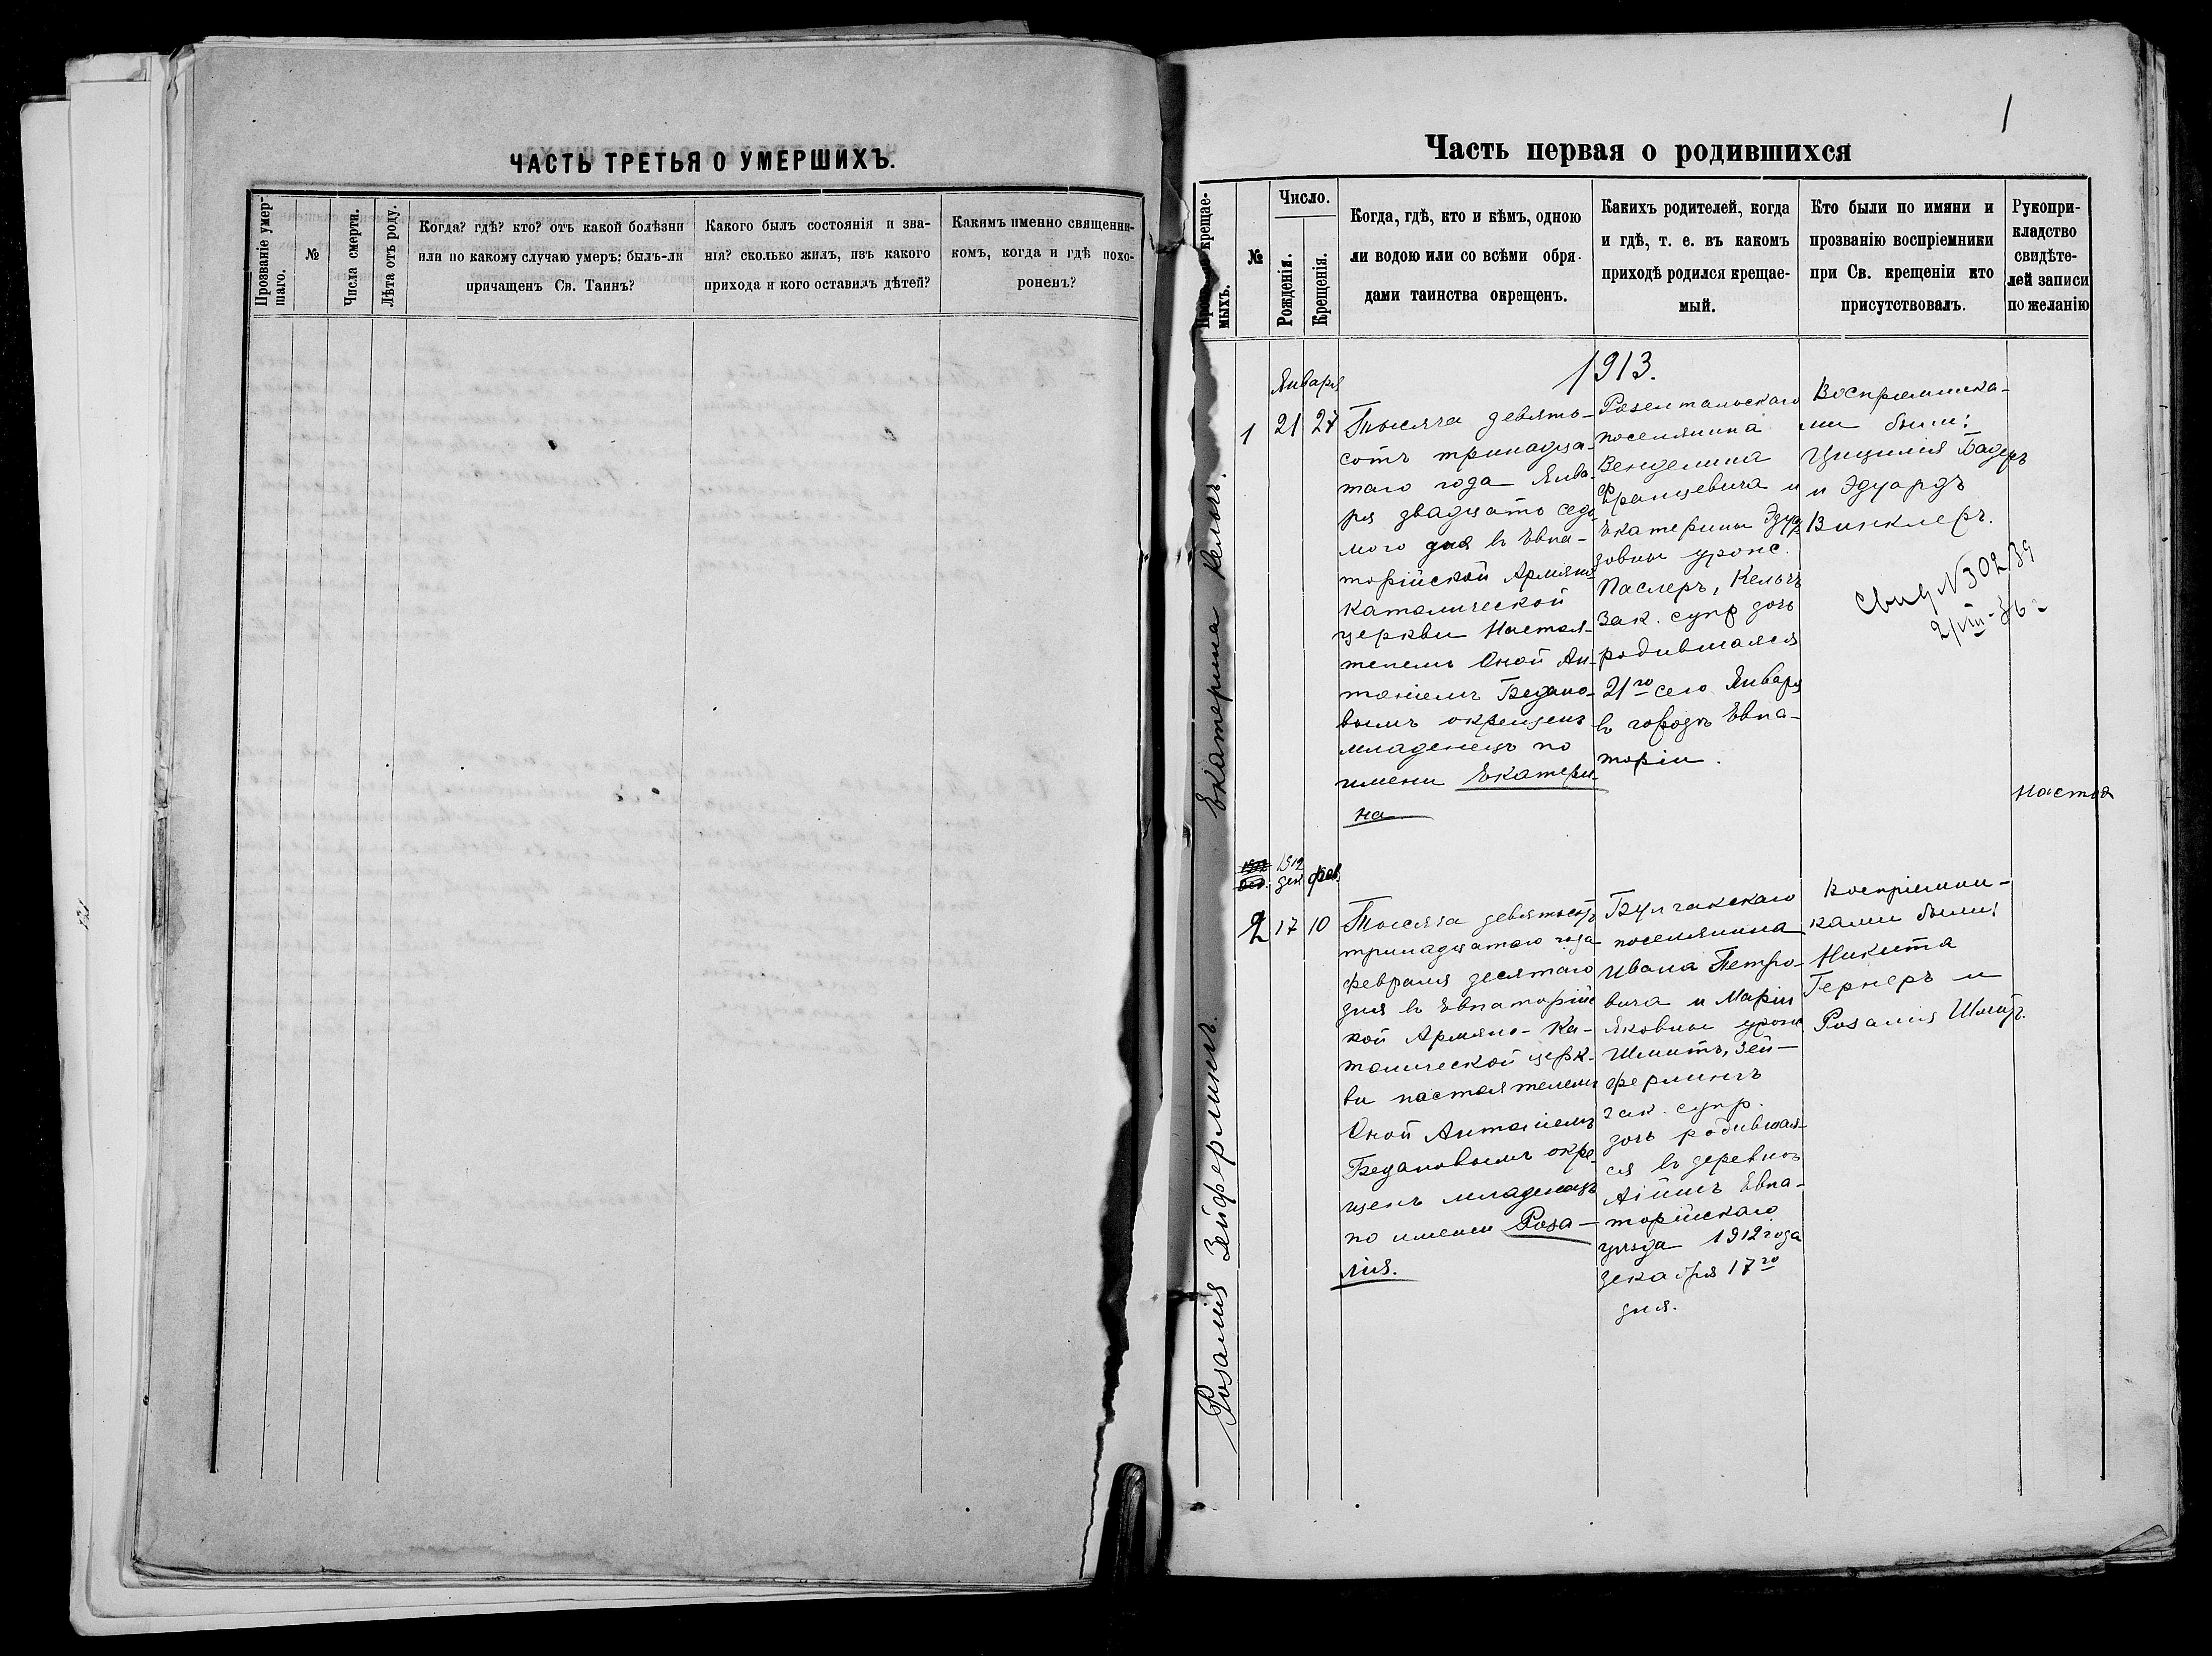 ЧАСТЬ ТРЕТЬЯ О УМЕРШИХЪ.
Прозваніе умер-
шаго.
№
Числа смерти.
Лѣта отъ роду.
Когда? гдѣ? кто? отъ какой болѣзни
или по какому случаю умеръ; былъ-ли
причащенъ Св. Таинъ?
Какого былъ состоянія и зва-
нія? сколько жилъ, изъ какого
прихода и кого оставилъ дѣтей?
Какимъ именно священни-
комъ, когда и гдѣ похо-
роненъ?
1
Часть первая о родившихся
крещае-
мыхъ.
№
Число.
Рожденія.
Крещенія.
Когда, гдѣ, кто и кѣмъ, одною
ли водою или со всѣми обря-
дами таинства окрещенъ.
Какихъ родителей, когда
и гдѣ, т. е. въ какомъ
приходѣ родился крещае-
мый.
Кто были по имяни и
прозванію воспріемники
при Св. крещеніи кто
присутствовалъ.
Рукопри-
кладство
свидѣте-
лей записи
по желанію
1913.
Января
Екатерина Кельчъ.
1
21
27
Тысяча девять-
сотъ тринадца-
таго года Янва-
ря двадцать седь-
мого дня въ Евпа-
торійской Армяно
Католической
церкви Настоя-
телемъ Оной Ан-
тоніемъ Бедано-
вымъ окрещенъ
младенецъ по
имени Екатери-
на
Розентальскаго
поселянина
Венделина
Францевича и
Екатерины Эдуар
довны урожс.
Паслеръ, Кельчъ
Зак. супр дочь
родившаяся
21го сего Января
въ городѣ Евпа-
торіи.
Воспріемника-
ми были:
Цицилія Бадеръ
и Эдуардъ
Винклеръ.
Свид N 30239
2/VIII-36
Настоя
1912
дек
фев.
Розалія Зейферлингъ.
2
17
10
Тысяча девятьсотъ
тринадцатаго года
февраля десятаго
дня въ Евпаторійс
кой Армяно-Ка-
толической церк-
ви настоятелемъ
Оной Антоніемъ
Бедановымъ окре-
щенъ младенецъ
по имени Роза-
лія.
Булгакскаго
поселянина
Ивана Петро-
вича и Маріи
Яковны урожс
Шмитъ, Зей-
ферлингъ
зак. супр.
дочь родившая-
ся въ деревнѣ
Аіишъ Евпа-
торійскаго
уѣзда 1912 года
декабря 17го
дня.
Воспріемни-
ками были:
Никита
Гернеръ и
Розалія Шмидъ.